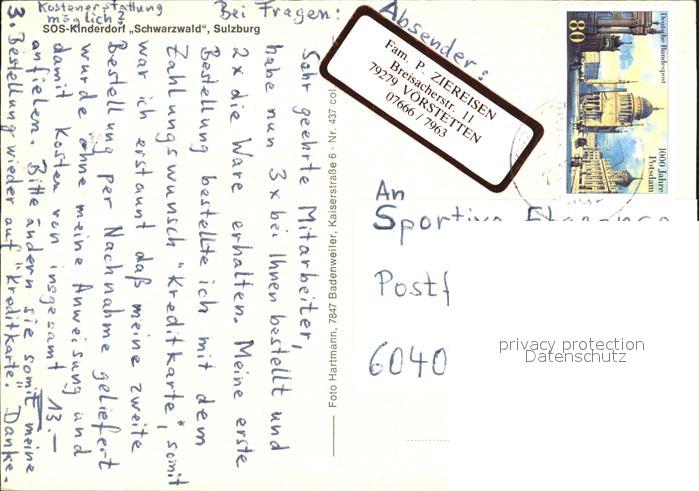 Kostenerstattung
möglich?
SOS-Kinderdorf „Schwarzwald“, Sulzburg
Bei Fragen:
Absender:
Fam. P. ZIEREISEN
Breisacherstr. 11
79279 VÖRSTETTEN
07666 / 7963
Deutsche Bundespost
80
1000 Jahre
Potsdam
Sehr geehrte Mitarbeiter,
habe nun 3x bei Ihnen bestellt und
2x die Ware erhalten. Meine erste
Bestellung bestellte ich mit dem
Zahlungswunsch "Kreditkarte", somit
war ich erstaunt daß meine zweite
Bestellung per Nachnahme geliefert
wurde ohne meine Anweisung und
damit Kosten von insgesamt 13.–
anfielen. Bitte ändern sie somit meine
3. Bestellung wieder auf "Kreditkarte". Danke.
Foto Hartmann, 7847 Badenweiler, Kaiserstraße 6 · Nr. 437 col
An
Postf
6040
privacy protection
Datenschutz